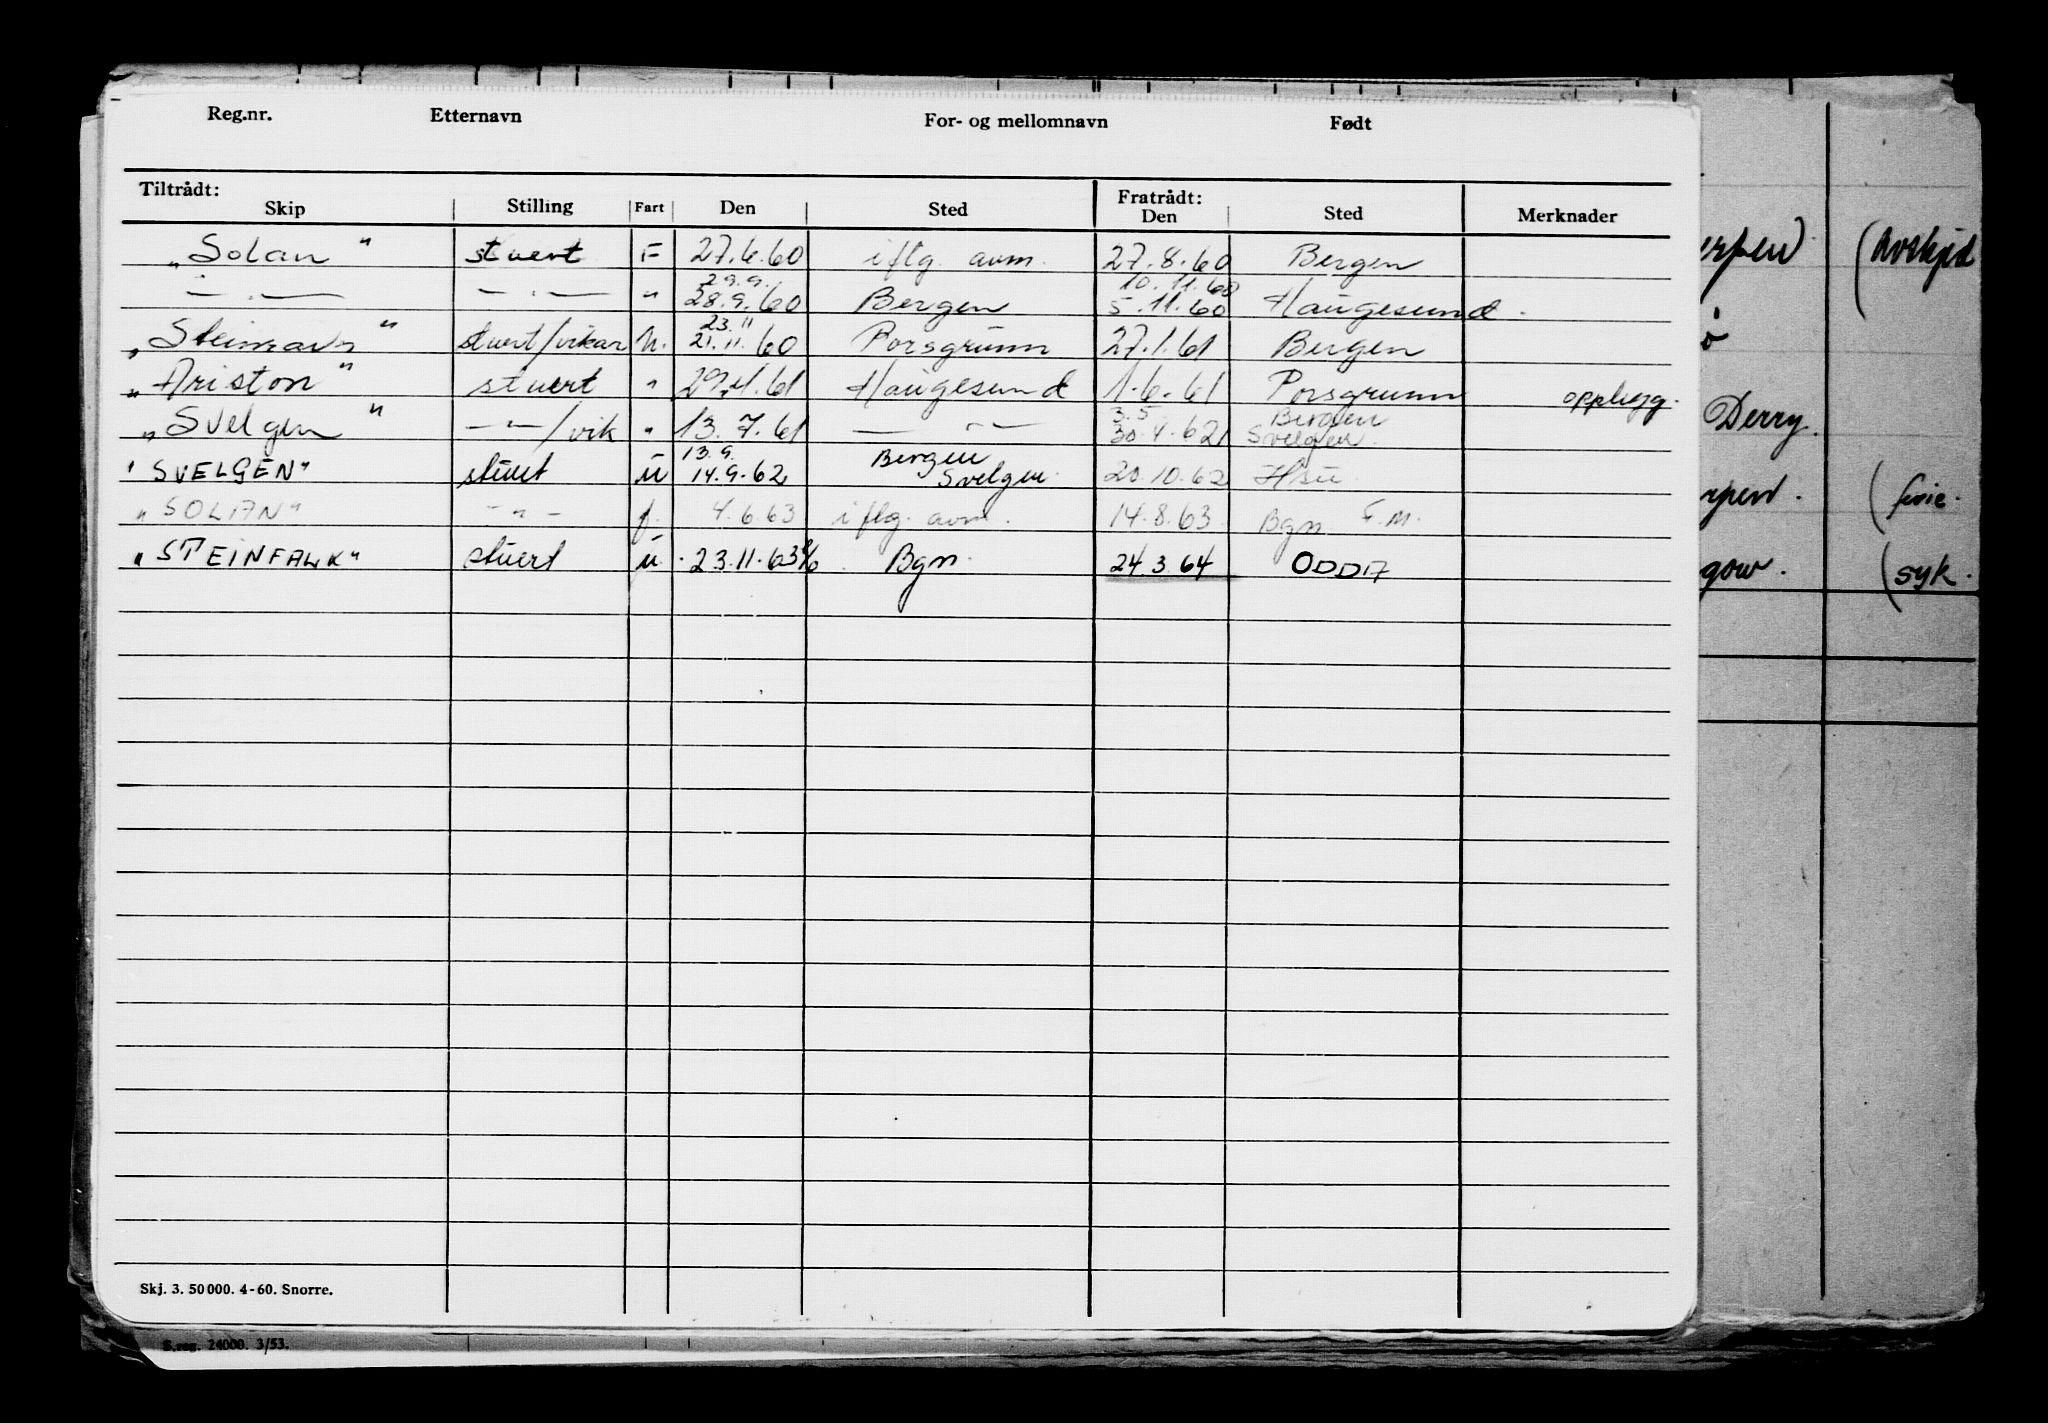 Reg.nr. Etternavn For- og mellomnavn Født
Tiltrådt: Fratrådt:
Skip Stilling Fart Den Sted Den Sted Merknader
„Solan" stuert F 27.6.60 iflg. avm. 27.8.60 Bergen
29.9. 10.11.60
— " — — " — " 28.9.60 Bergen 5.11.60 Haugesund.
23.11
„Steinravn" stuert/vikar U. 21.11.60 Porsgrunn 27.1.61 Bergen
„Ariston" stuert " 29.4.61 Haugesund 1.6.61 Porsgrunn opplegg.
3.5 Bergen
„Svelgen" — " —/vik " 13.7.61 — " — 30.4.62 Svelgen.
13.9. Bergen
"SVELGEN" stuert u 14.9.62 Svelgen. 20.10.62 Hsu.
"SOLAN" - " - f. 4.6.63 iflg. avm. 14.8.63 Bgn. F.M.
"STEINFALK" stuert u. 23.11.63 Bgn. 24.3.64 ODDA
Skj. 3. 50 000. 4-60. Snorre.
S.reg. 24000. 3/53.
(Avskjed
Derry.
(ferie.
(syk.